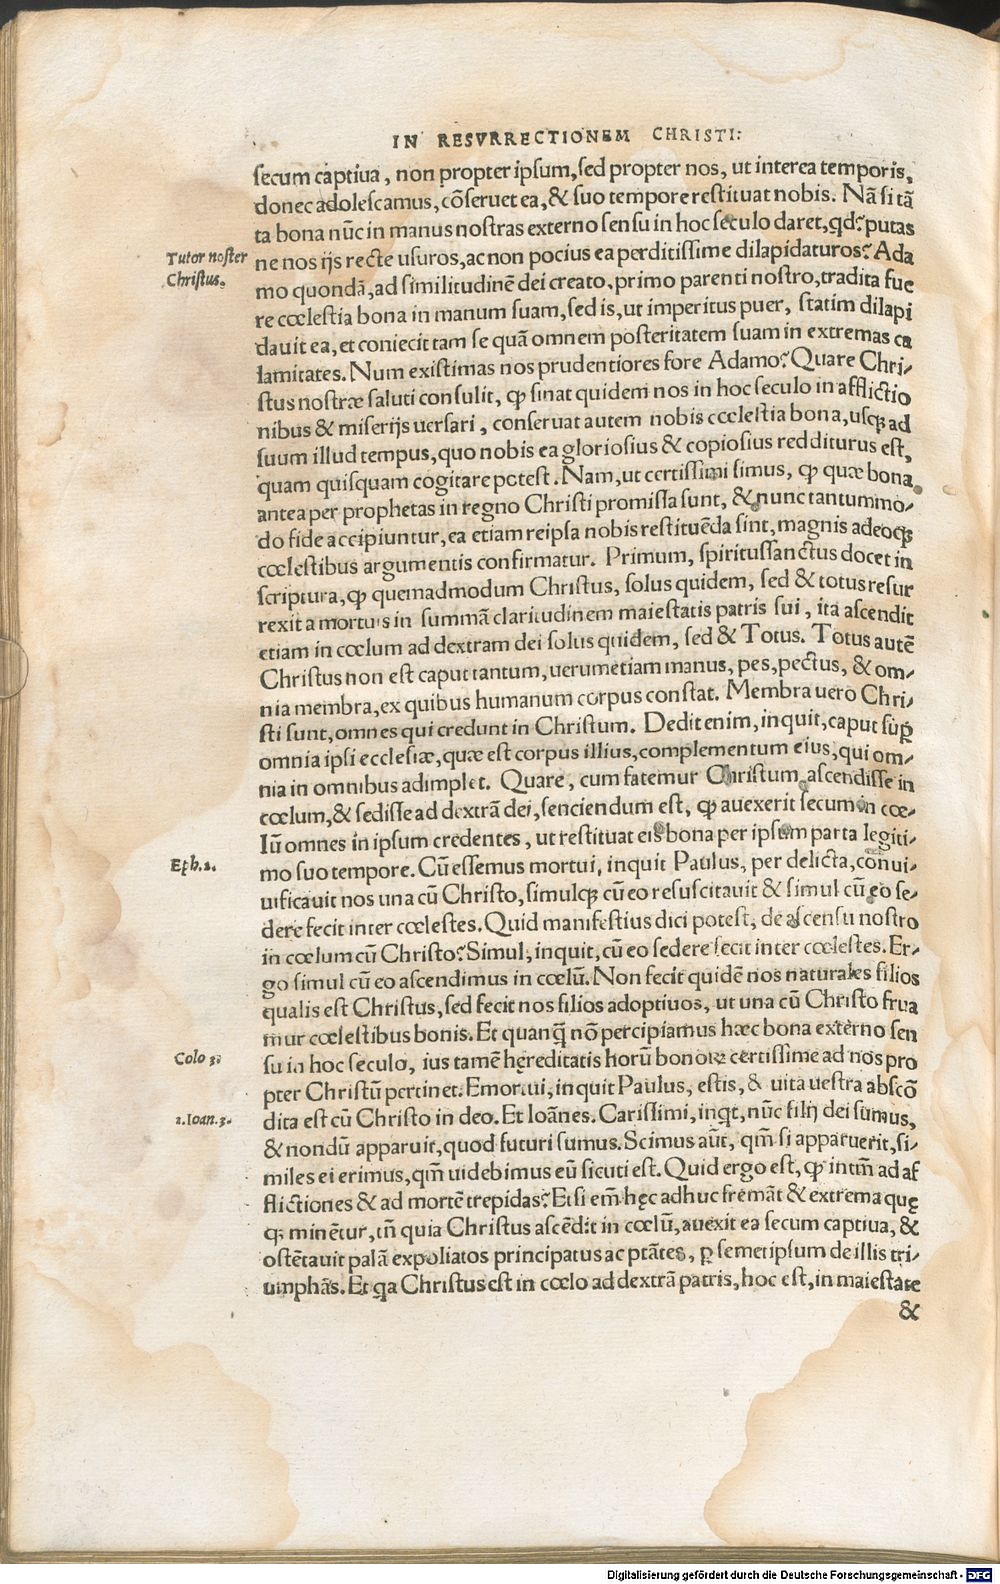 IN RESVRRECTIONEM CHRISTI:
secum captiua, non propter ipsum, sed propter nos, ut interea temporis,
donec adolescamus, cōseruet ea, & suo tempore restituat nobis. Nā si tā
ta bona nūc in manus nostras externo sensu in hoc seculo daret, qd? putas
Tutor noster
Christus.
ne nos ijs recte usuros, ac non pocius ea perditissime dilapidaturos? Ada
mo quondā, ad similitudinē dei creato, primo parenti nostro, tradita fue
re cœlestia bona in manum suam, sed is, ut imperitus puer, statim dilapi
dauit ea, et coniecit tam se quā omnem posteritatem suam in extremas ca
lamitates. Num existimas nos prudentiores fore Adamo? Quare Chri/
stus nostræ saluti consulit, ꝙ sinat quidem nos in hoc seculo in afflictio
nibus & miserijs uersari, conseruat autem nobis cœlestia bona, usqꝫ ad
suum illud tempus, quo nobis ea gloriosius & copiosius redditurus est,
quam quisquam cogitare potest. Nam, ut certissimi simus, ꝙ quæ bona
antea per prophetas in regno Christi promissa sunt, & nunc tantummo/
do fide accipiuntur, ea etiam reipsa nobis restituēda sint, magnis adeoqꝫ
cœlestibus argumentis confirmatur. Primum, spiritussanctus docet in
scriptura, ꝙ quemadmodum Christus, solus quidem, sed & totus resur
rexit a mortuis in summā claritudinem maiestatis patris sui, ita ascendit
etiam in cœlum ad dextram dei solus quidem, sed & Totus. Totus autē
Christus non est caput tantum, uerumetiam manus, pes, pectus, & om/
nia membra, ex quibus humanum corpus constat. Membra uero Chri/
sti sunt, omnes qui credunt in Christum. Dedit enim, inquit, caput suꝑ
omnia ipsi ecclesiæ, quæ est corpus illius, complementum eius, qui om/
nia in omnibus adimplet. Quare, cum fatemur Christum ascendisse in
cœlum, & sedisse ad dextrā dei, senciendum est, ꝙ auexerit secum in cœ/
lū omnes in ipsum credentes, ut restituat eis bona per ipsum parta legiti/
Eph. 2.
mo suo tempore. Cū essemus mortui, inquit Paulus, per delicta, conui/
uificauit nos una cū Christo, simulqꝫ cū eo resuscitauit & simul cū eo se/
dere fecit inter cœlestes. Quid manifestius dici potest, de ascensu nostro
in cœlum cū Christo? Simul, inquit, cū eo sedere fecit inter cœlestes. Er/
go simul cū eo ascendimus in cœlū. Non fecit quidē nos naturales filios
qualis est Christus, sed fecit nos filios adoptiuos, ut una cū Christo frua
mur cœlestibus bonis. Et quanq̄ nō percipiamus hæc bona externo sen
Colo 3.
su in hoc seculo, ius tamē hęreditatis horū bonoꝝ certissime ad nos pro
pter Christū pertinet. Emortui, inquit Paulus, estis, & uita uestra abscō
1. Ioan. 3.
dita est cū Christo in deo. Et Ioānes. Carissimi, inqt, nūc filij dei sumus,
& nondū apparuit, quod futuri sumus. Scimus aūt, qm̄ si apparuerit, si/
miles ei erimus, qm̄ uidebimus eū sicuti est. Quid ergo est, ꝙ intm̄ ad af
flictiones & ad mortē trepidas? Etsi em̄ hęc adhuc fremāt & extrema quę
qꝫ minētur, tn̄ quia Christus ascēdit in cœlū, auexit ea secum captiua, &
ostētauit palā expoliatos principatus ac ptātes, ꝑ semetipsum de illis tri/
umphās. Et qa Christus est in cœlo ad dextrā patris, hoc est, in maiestate
&
Digitalisierung gefördert durch die Deutsche Forschungsgemeinschaft - DFG